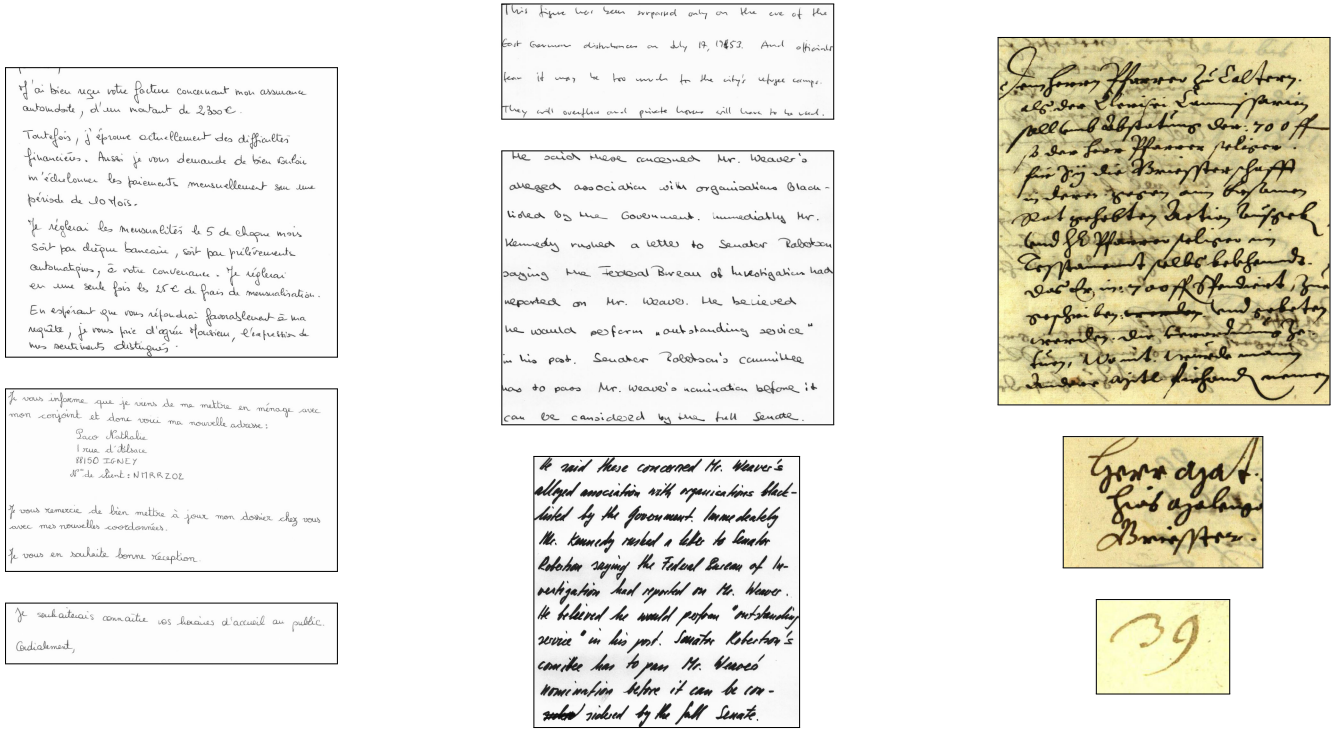 J'ai bien reçu votre facture concernant mon assurance
automobile, d'un montant de 2300€.
Toutefois, j'éprouve actuellement des difficultés
financières. Aussi je vous demande de bien vouloir
m'échelonner les paiements mensuellement sur une
période de 10 Mois.
Je réglerai les mensualités le 5 de chaque mois
soit par chèque bancaire, soit par prélèvements
automatiques, à votre convenance. Je réglerai
en une seule fois les 25€ de frais de mensualisation.
En espérant que vous répondrai favorablement à ma
requête, je vous prie d'agréer Monsieur, l'expression de
mes sentiments distingués.
Je vous informe que je viens de me mettre en ménage avec
mon conjoint et donc voici ma nouvelle adresse :
Paco Nathalie
1 rue d'Alsace
88150 IGNEY
N° de client : NMRRZ02
Je vous remercie de bien mettre à jour mon dossier chez vous
avec mes nouvelles coordonnées.
Je vous en souhaite bonne réception.
Je souhaiterais connaître vos horaires d'accueil au public.
Cordialement,
This figure has been surpassed only on the eve of the
East German disturbances on July 17, 1953. And officials
fear it may be too much for the city's refugee camps.
They will overflow and private homes will have to be used.
He said these concerned Mr. Weaver's
alleged association with organisations black-
listed by the Government. Immediatly Mr.
Kennedy rushed a letter to Senator Robetson
saying the Federal Bureau of Investigation had
reported on Mr. Weaver. He believed
he would perform "outstanding service"
in his post. Senator Robetson's committee
has to pass Mr. Weaver's nomination before it
can be considered by the full Senate.
He said these concerned Mr. Weaver's
alleged association with organisations black-
listed by the Government. Immediately
Mr. Kennedy rushed a letter to Senator
Robetson saying the Federal Bureau of In-
vestigation had reported on Mr. Weaver.
He believed he would perform "outstanding
service" in his post. Senator Robertson's
comittee has to pass Mr. Weaver's
nomination before it can be con-
sidered by the full Senate.
herrn Pfarrer Zu Caltern.
als der Clerisei Commissarien
der 700 ff
so der herr Pfarrer seliger
in die Briesterschafft
und Pfarrer seliger in
Testtament selbs bekhennt.
das Er in 700 ff Spendiert,
geschriben und gebeten
werden. die
Herr
Briester.
39